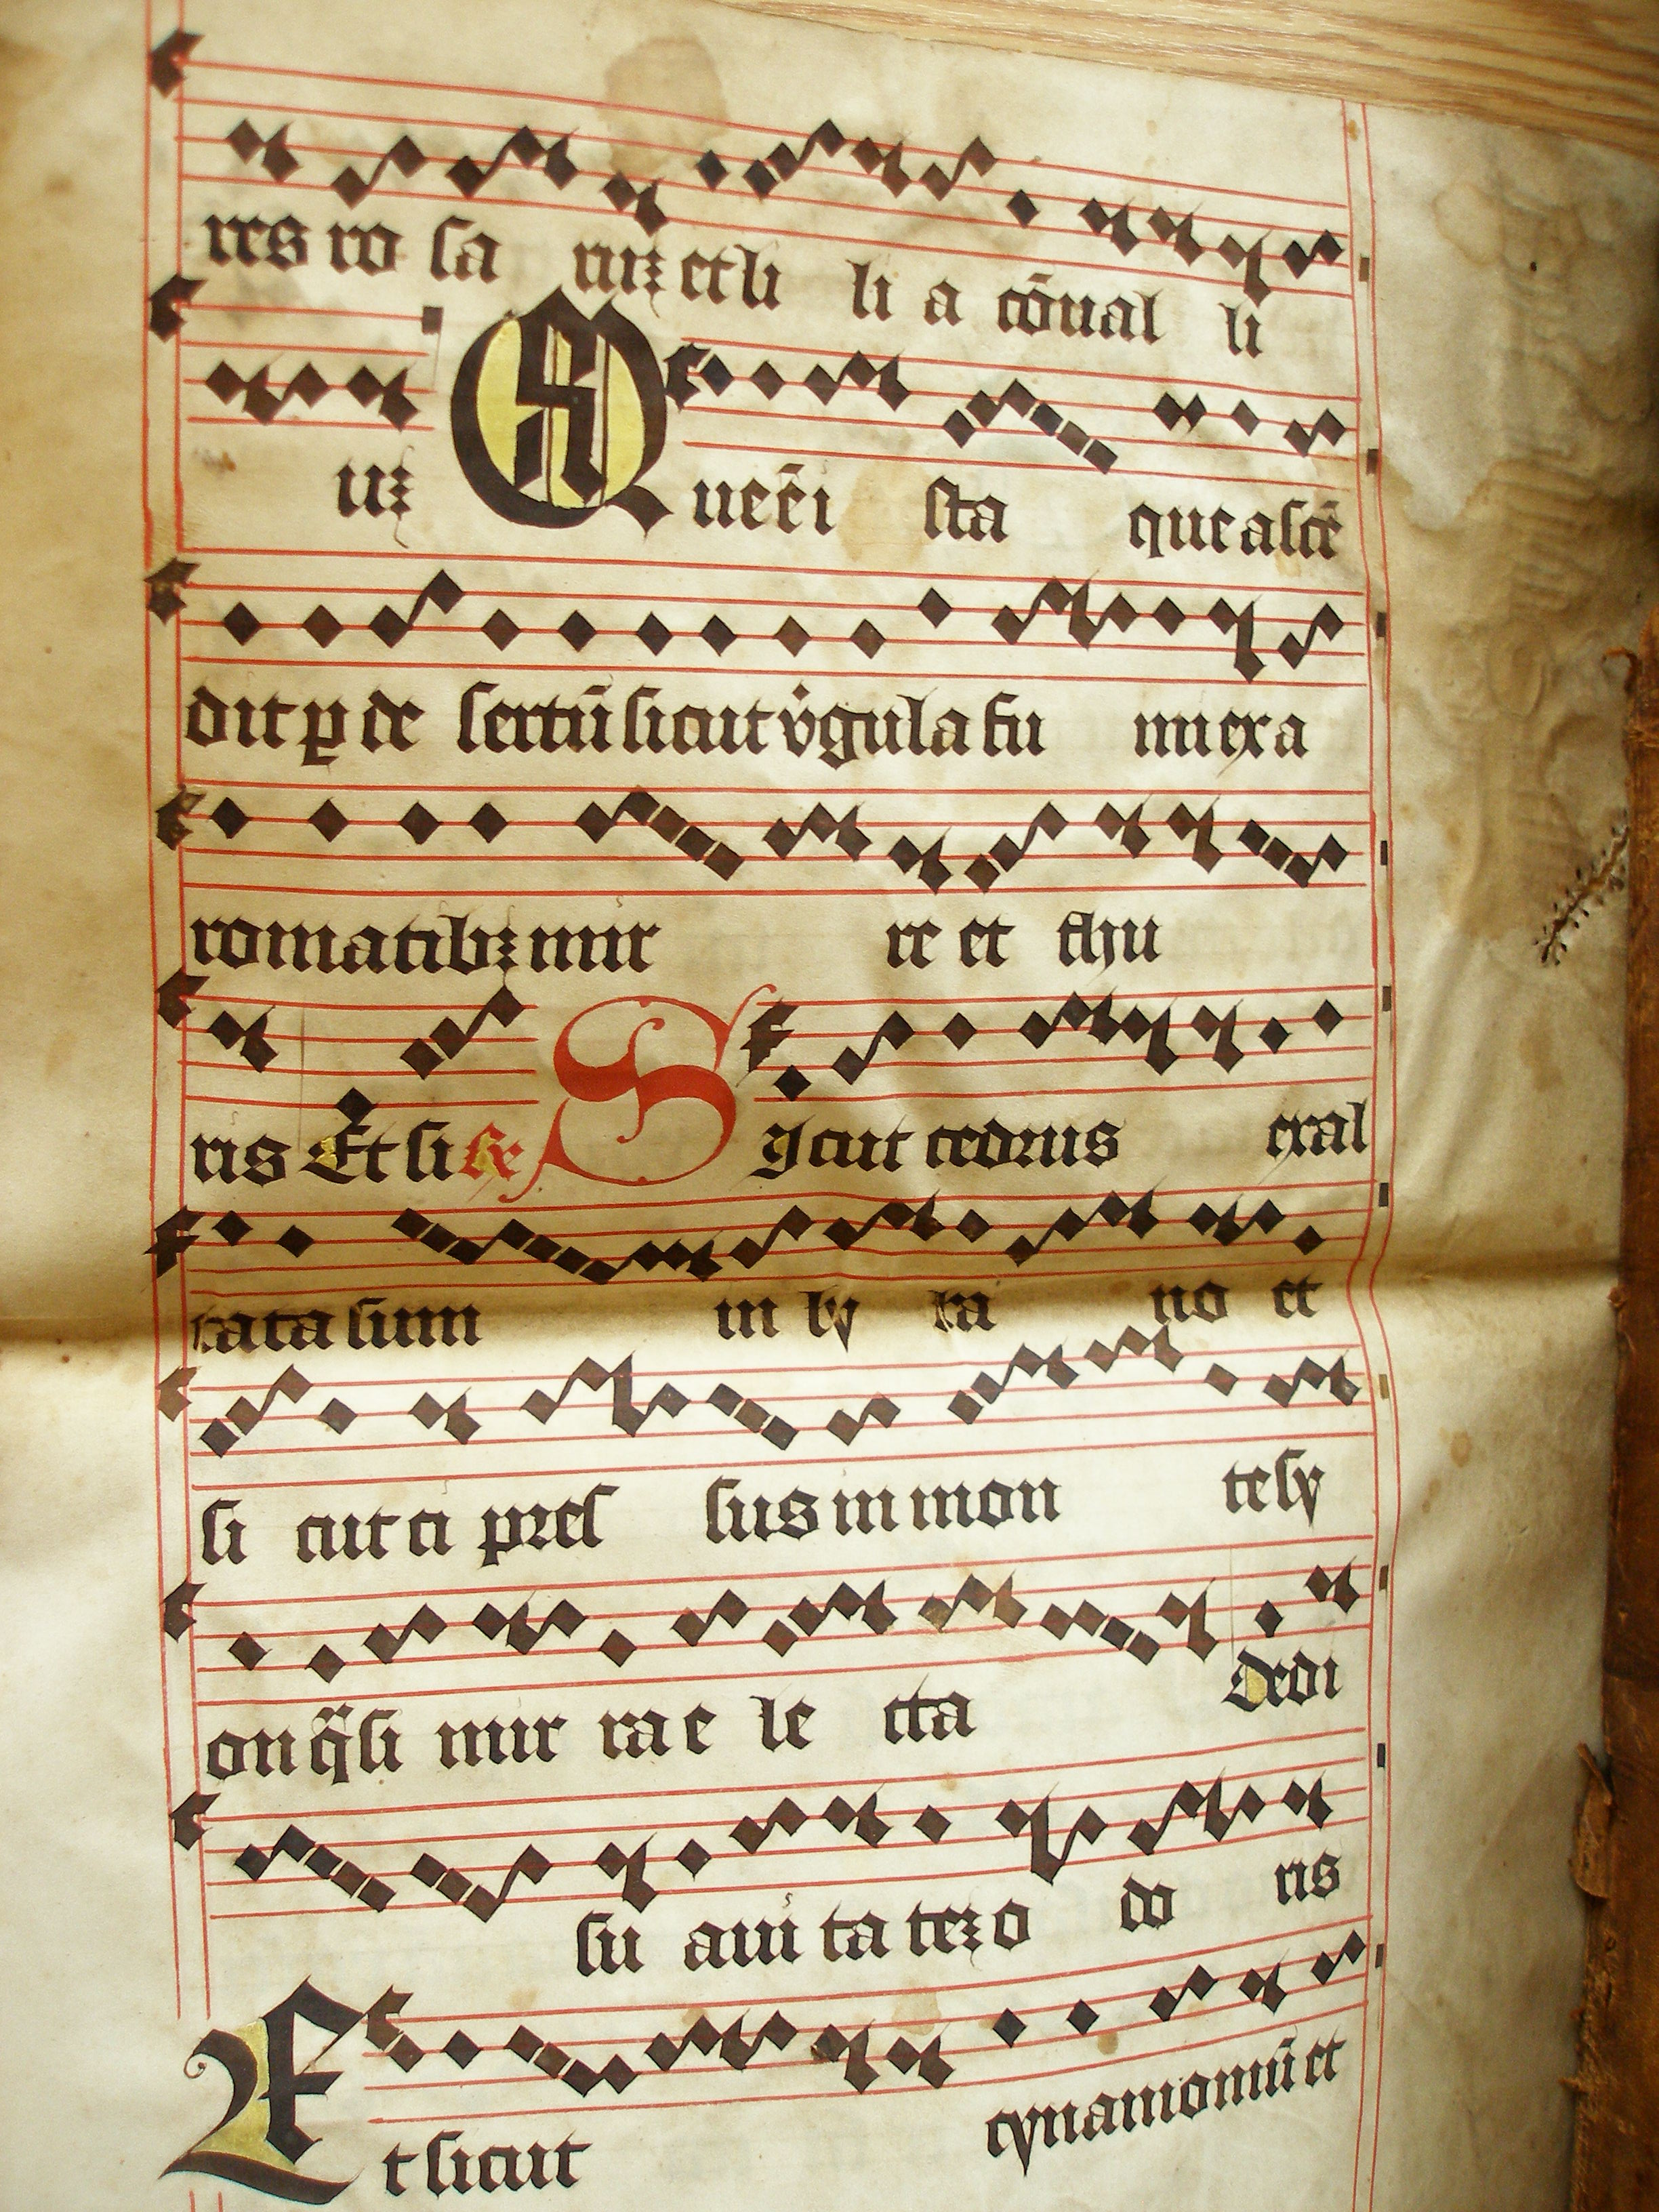 res ro sa rūꝫ et li li a cōual li
uꝫ Que ē i sta que ascē
dit ꝑ de sertū sicut v̇gula fu mi ex a
romatibꝫ mir re et thu
ris Et si R̄ Sycut cedrus exal
tata sum in ly ba no et
si cut ci pres sus in mon te sy
on q̈si mir ra e le cta Dedi
su aui ta teꝫ o do ris
Et sicut cynamomū et